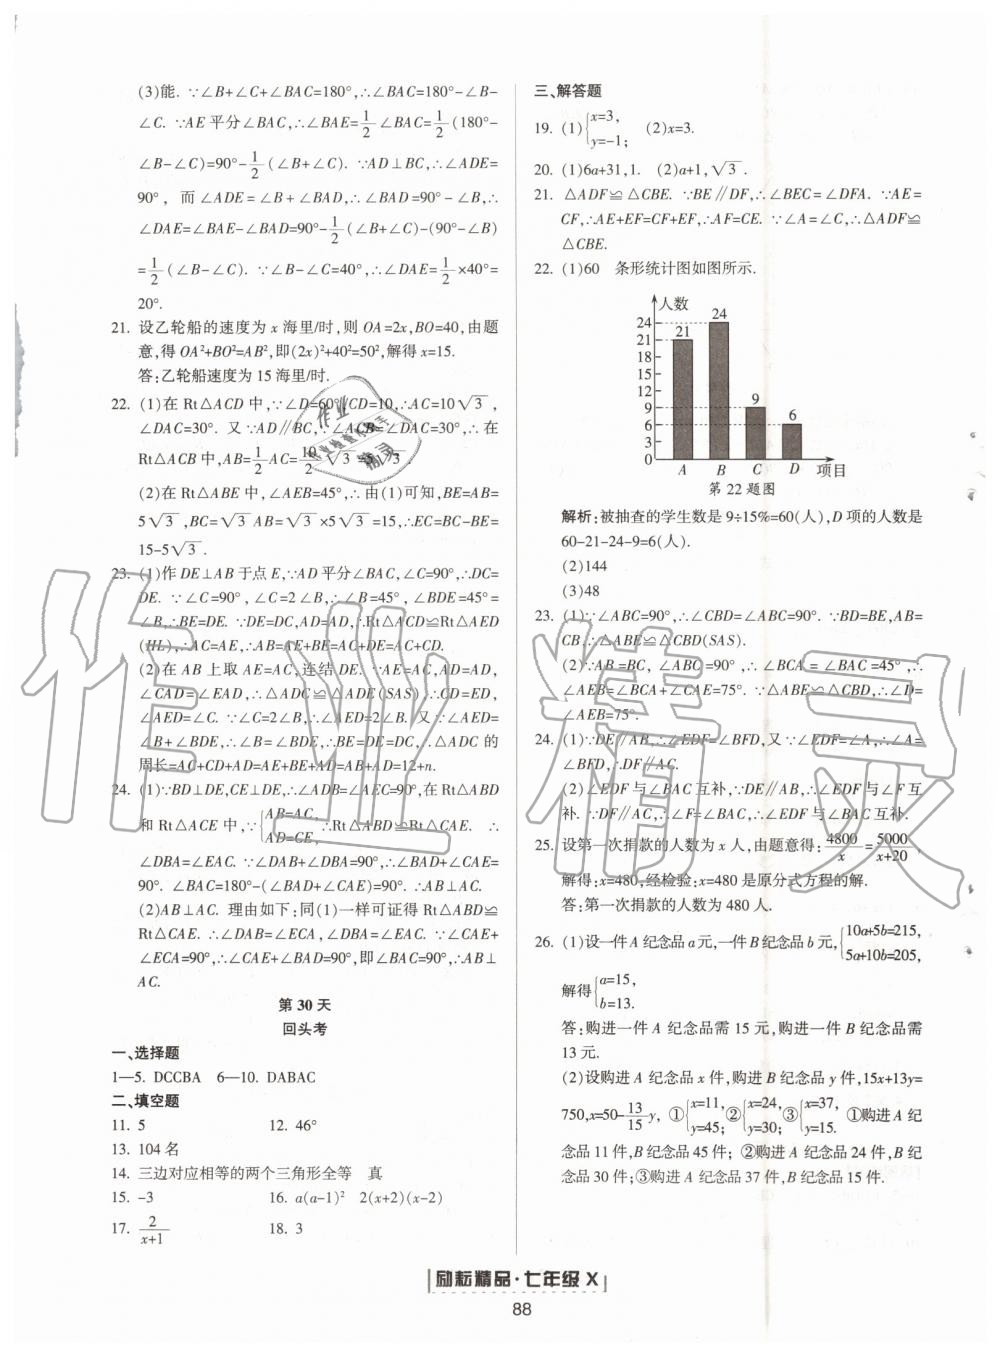 (3)能. ∵∠B+∠C+∠BAC=180°,∴∠BAC=180°-∠B-
∠C. ∵AE平分∠BAC,∴∠BAE=1/2∠BAC=1/2(180°-
∠B-∠C)=90°-1/2(∠B+∠C). ∵AD⊥BC,∴∠ADE=
90°, 而∠ADE=∠B+∠BAD,∴∠BAD=90°-∠B,∴
∠DAE=∠BAE-∠BAD=90°-1/2(∠B+∠C)-(90°-∠B)
=1/2(∠B-∠C). ∵∠B-∠C=40°,∴∠DAE=1/2×40°=
20°.
21. 设乙轮船的速度为x海里/时,则OA=2x,BO=40,由题
意,得OA²+BO²=AB²,即(2x)²+40²=50²,解得x=15.
答:乙轮船速度为15海里/时.
22. (1)在Rt△ACD中,∵∠D=60°,CD=10,∴AC=10√3,
∠DAC=30°. 又∵AD∥BC,∴∠ACB=∠DAC=30°,∴在
Rt△ACB中,AB=1/2AC=10/2√3=5√3.
(2)在Rt△ABE中,∠AEB=45°,∴由(1)可知,BE=AB=
5√3,BC=√3AB=√3×5√3=15,∴EC=BC-BE=
15-5√3.
23. (1)作DE⊥AB于点E,∵AD平分∠BAC,∠C=90°,∴DC=
DE. ∵∠C=90°,∠C=2∠B,∴∠B=45°,∠BDE=45°=
∠B,∴BE=DE. ∵DE=DC,AD=AD,∴Rt△ACD≌Rt△AED
(HL),∴AC=AE,∴AB=AE+BE=AC+DE=AC+CD.
(2)在AB上取AE=AC,连结DE. ∵AE=AC,AD=AD,
∠CAD=∠EAD,∴△ADC≌△ADE(SAS),∴CD=ED,
∠AED=∠C. ∵∠C=2∠B,∴∠AED=2∠B. 又∵∠AED=
∠B+∠BDE,∴∠B=∠BDE,∴BE=DE=DC,∴△ADC的
周长=AC+CD+AD=AE+BE+AD=AB+AD=12+n.
24. (1)∵BD⊥DE,CE⊥DE,∴∠ADB=∠AEC=90°,在Rt△ABD
和Rt△ACE中,∵{AB=AC, AD=CE,∴Rt△ABD≌Rt△CAE. ∴
∠DBA=∠EAC. ∵∠DAB+∠DBA=90°,∴∠BAD+∠EAC=
90°. ∠BAC=180°-(∠BAD+∠CAE)=90°.∴AB⊥AC.
(2)AB⊥AC. 理由如下:同(1)一样可证得Rt△ABD≌
Rt△CAE. ∴∠DAB=∠ECA,∠DBA=∠EAC. ∵∠CAE+
∠ECA=90°,∴∠CAE+∠BAD=90°,即∠BAC=90°,∴AB⊥
AC.
第30天
回头考
一、选择题
1—5. DCCBA 6—10. DABAC
二、填空题
11. 5 12. 46°
13. 104名
14. 三边对应相等的两个三角形全等 真
15. -3 16. a(a-1)² 2(x+2)(x-2)
17. 2/(x+1) 18. 3
三、解答题
19. (1){x=3, y=-1; (2)x=3.
20. (1)6a+31,1. (2)a+1,√3.
21. △ADF≌△CBE. ∵BE∥DF,∴∠BEC=∠DFA. ∵AE=
CF,∴AE+EF=CF+EF,∴AF=CE. ∵∠A=∠C,∴△ADF≌
△CBE.
22. (1)60 条形统计图如图所示.
人数
24
21
18
15
12
9
6
3
0
21
24
9
6
A B C D 项目
第22题图
解析:被抽查的学生数是9÷15%=60(人),D项的人数是
60-21-24-9=6(人).
(2)144
(3)48
23. (1)∵∠ABC=90°,∴∠CBD=∠ABC=90°. ∵BD=BE,AB=
CB.∴△ABE≌△CBD(SAS).
(2)∵AB=BC,∠ABC=90°,∴∠BCA=∠BAC=45°,∴
∠AEB=∠BCA+∠CAE=75°. ∵△ABE≌△CBD,∴∠D=
∠AEB=75°.
24. (1)∵DE∥AB,∴∠EDF=∠BFD,又∵∠EDF=∠A,∴∠A=
∠BFD,∴DF∥AC.
(2)∠EDF与∠BAC互补,∵DE∥AB,∴∠EDF与∠F互
补.∵DF∥AC,∴∠F=∠BAC,∴∠EDF与∠BAC互补.
25. 设第一次捐款的人数为x人,由题意得:4800/x=5000/(x+20),
解得:x=480,经检验:x=480是原分式方程的解.
答:第一次捐款的人数为480人.
26. (1)设一件A纪念品a元,一件B纪念品b元,{10a+5b=215, 5a+10b=205,
解得{a=15, b=13.
答:购进一件A纪念品需15元,购进一件B纪念品需
13元.
(2)设购进A纪念品x件,购进B纪念品y件,15x+13y=
750,x=50-13/15y, ①{x=11, y=45;②{x=24, y=30;③{x=37, y=15. ①购进A纪
念品11件,B纪念品45件;②购进A纪念品24件,B纪
念品30件;③购进A纪念品37件,B纪念品15件.
励耘精品·七年级X
88
作业精灵